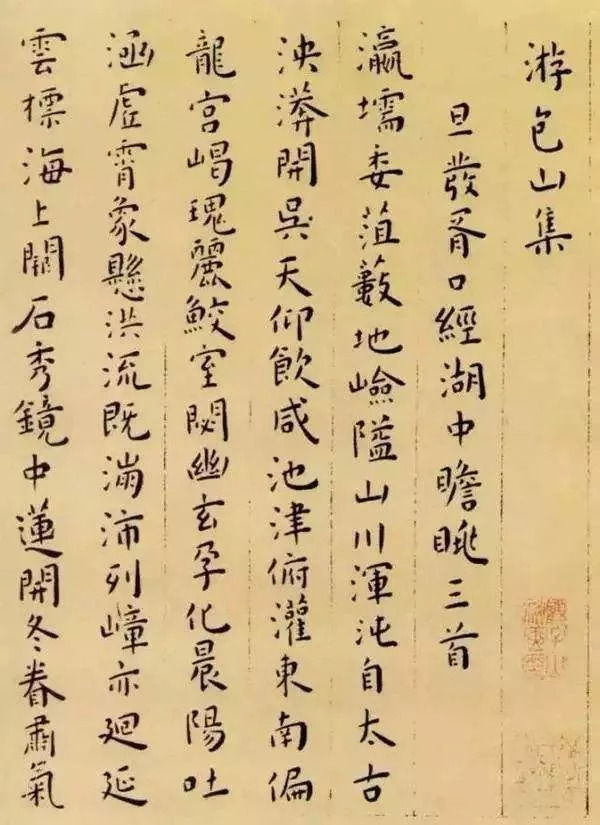 游包山集
旦發胥口經湖中瞻眺三首
瀛壖委菹藪地嶮隘山川渾沌自太古
泱漭開吳天仰飲咸池津俯灌東南偏
龍宮嵑瑰麗鮫室閟幽玄孕化晨陽吐
涵虛霄象懸洪流既漰沛列嶂亦迴延
雲標海上闕石秀鏡中蓮開冬眷肅氣